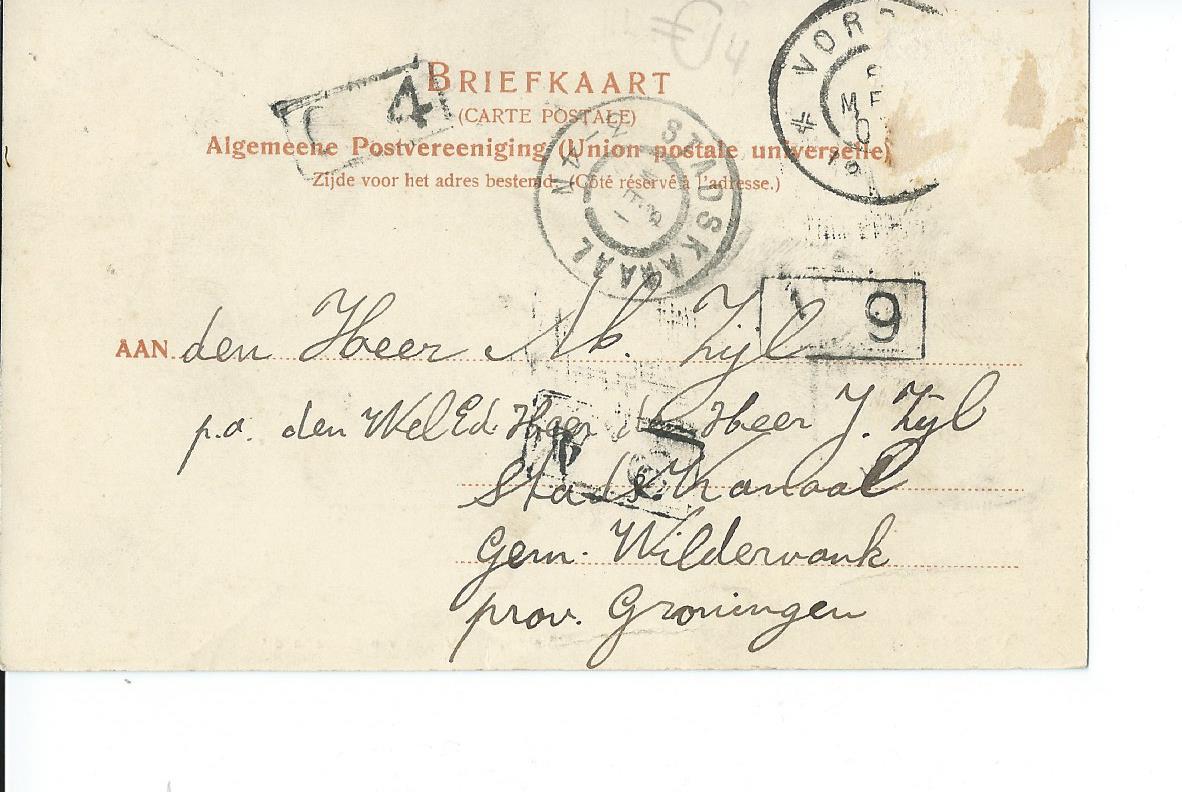 € 14
VOR
4
BRIEFKAART
(CARTE POSTALE)
Algemeene Postvereeniging (Union postale universelle)
Zijde voor het adres bestemd. (Côté réservé à l'adresse.)
STADSKANAAL
1 9
AAN den Heer Ab. Zijl
p.a. den WelEd. Heer den Heer J. Zijl
Stadskanaal
Gem. Wildervank
prov. Groningen